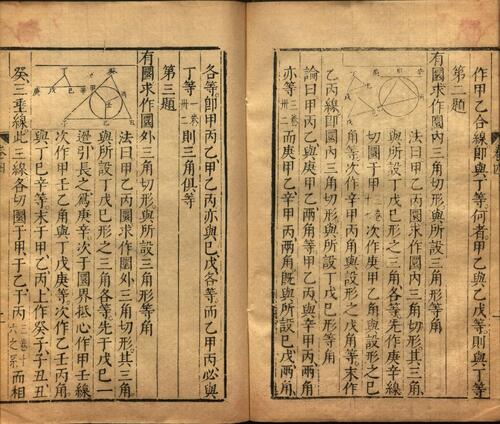 作甲乙合線即與丁等何者甲乙與戊等則與丁等
第二題
有圜求作圜內三角切形與所設三角形等角
法曰甲乙丙圜求作圜內三角切形其三角
與所設丁戊己形之三角各等先作庚辛線
切圜于甲次作庚甲乙角與設形之己
角等次作辛甲丙角與設形之戊角等末作
乙丙線即圜內三角切形與所設丁戊己形等角
論曰甲丙乙與庚甲乙兩角等甲乙丙與辛甲丙兩角
亦等而庚甲乙辛甲丙兩角既與所設己戊兩角
各等即甲丙乙甲乙丙亦與己戊各等而乙甲丙必與
丁等則三角俱等
第三題
有圜求作圜外三角切形與所設三角形等角
法曰甲乙丙圜求作圜外三角切形其三角
與所設丁戊己形之三角各等先于戊己一
邊引長之為庚辛次于圜界抵心作甲壬線
次作甲壬乙角與丁戊庚等次作乙壬丙角
與丁己辛等末于甲乙丙上作癸子子丑丑
癸三垂線此三線各切圜于甲于乙于丙三卷十六之系而相